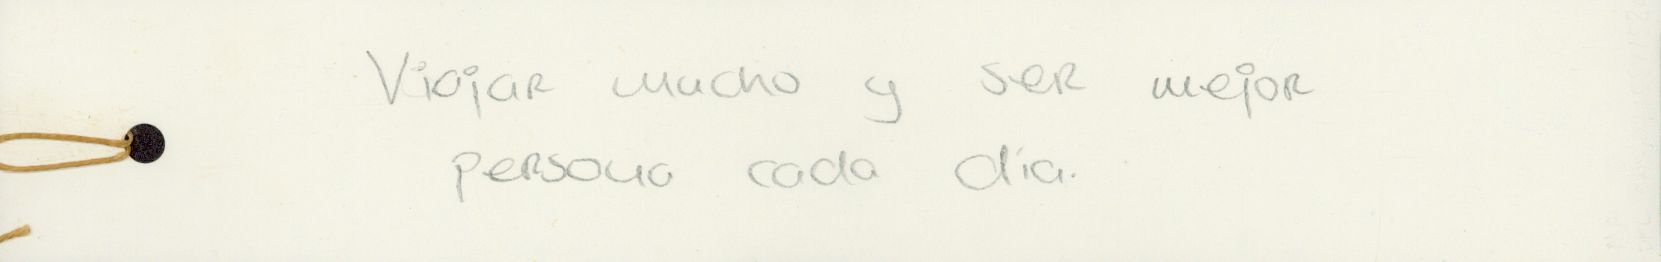 Viajar mucho y ser mejor
persona cada día.